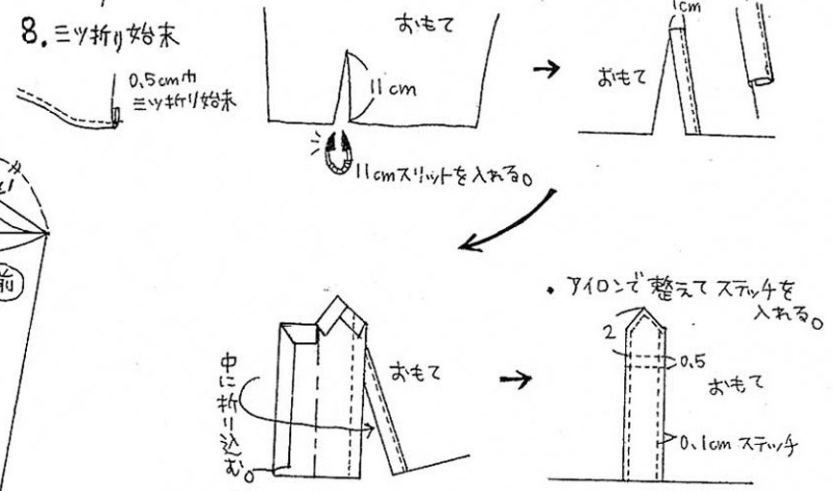 8. 三ツ折り始末
0.5cm巾
三ツ折り始末
おもて
11cm
11cmスリットを入れる。
1cm
おもて
中に折り込む。
おもて
・アイロンで整えてステッチを
入れる。
2
0.5
おもて
0.1cmステッチ
前